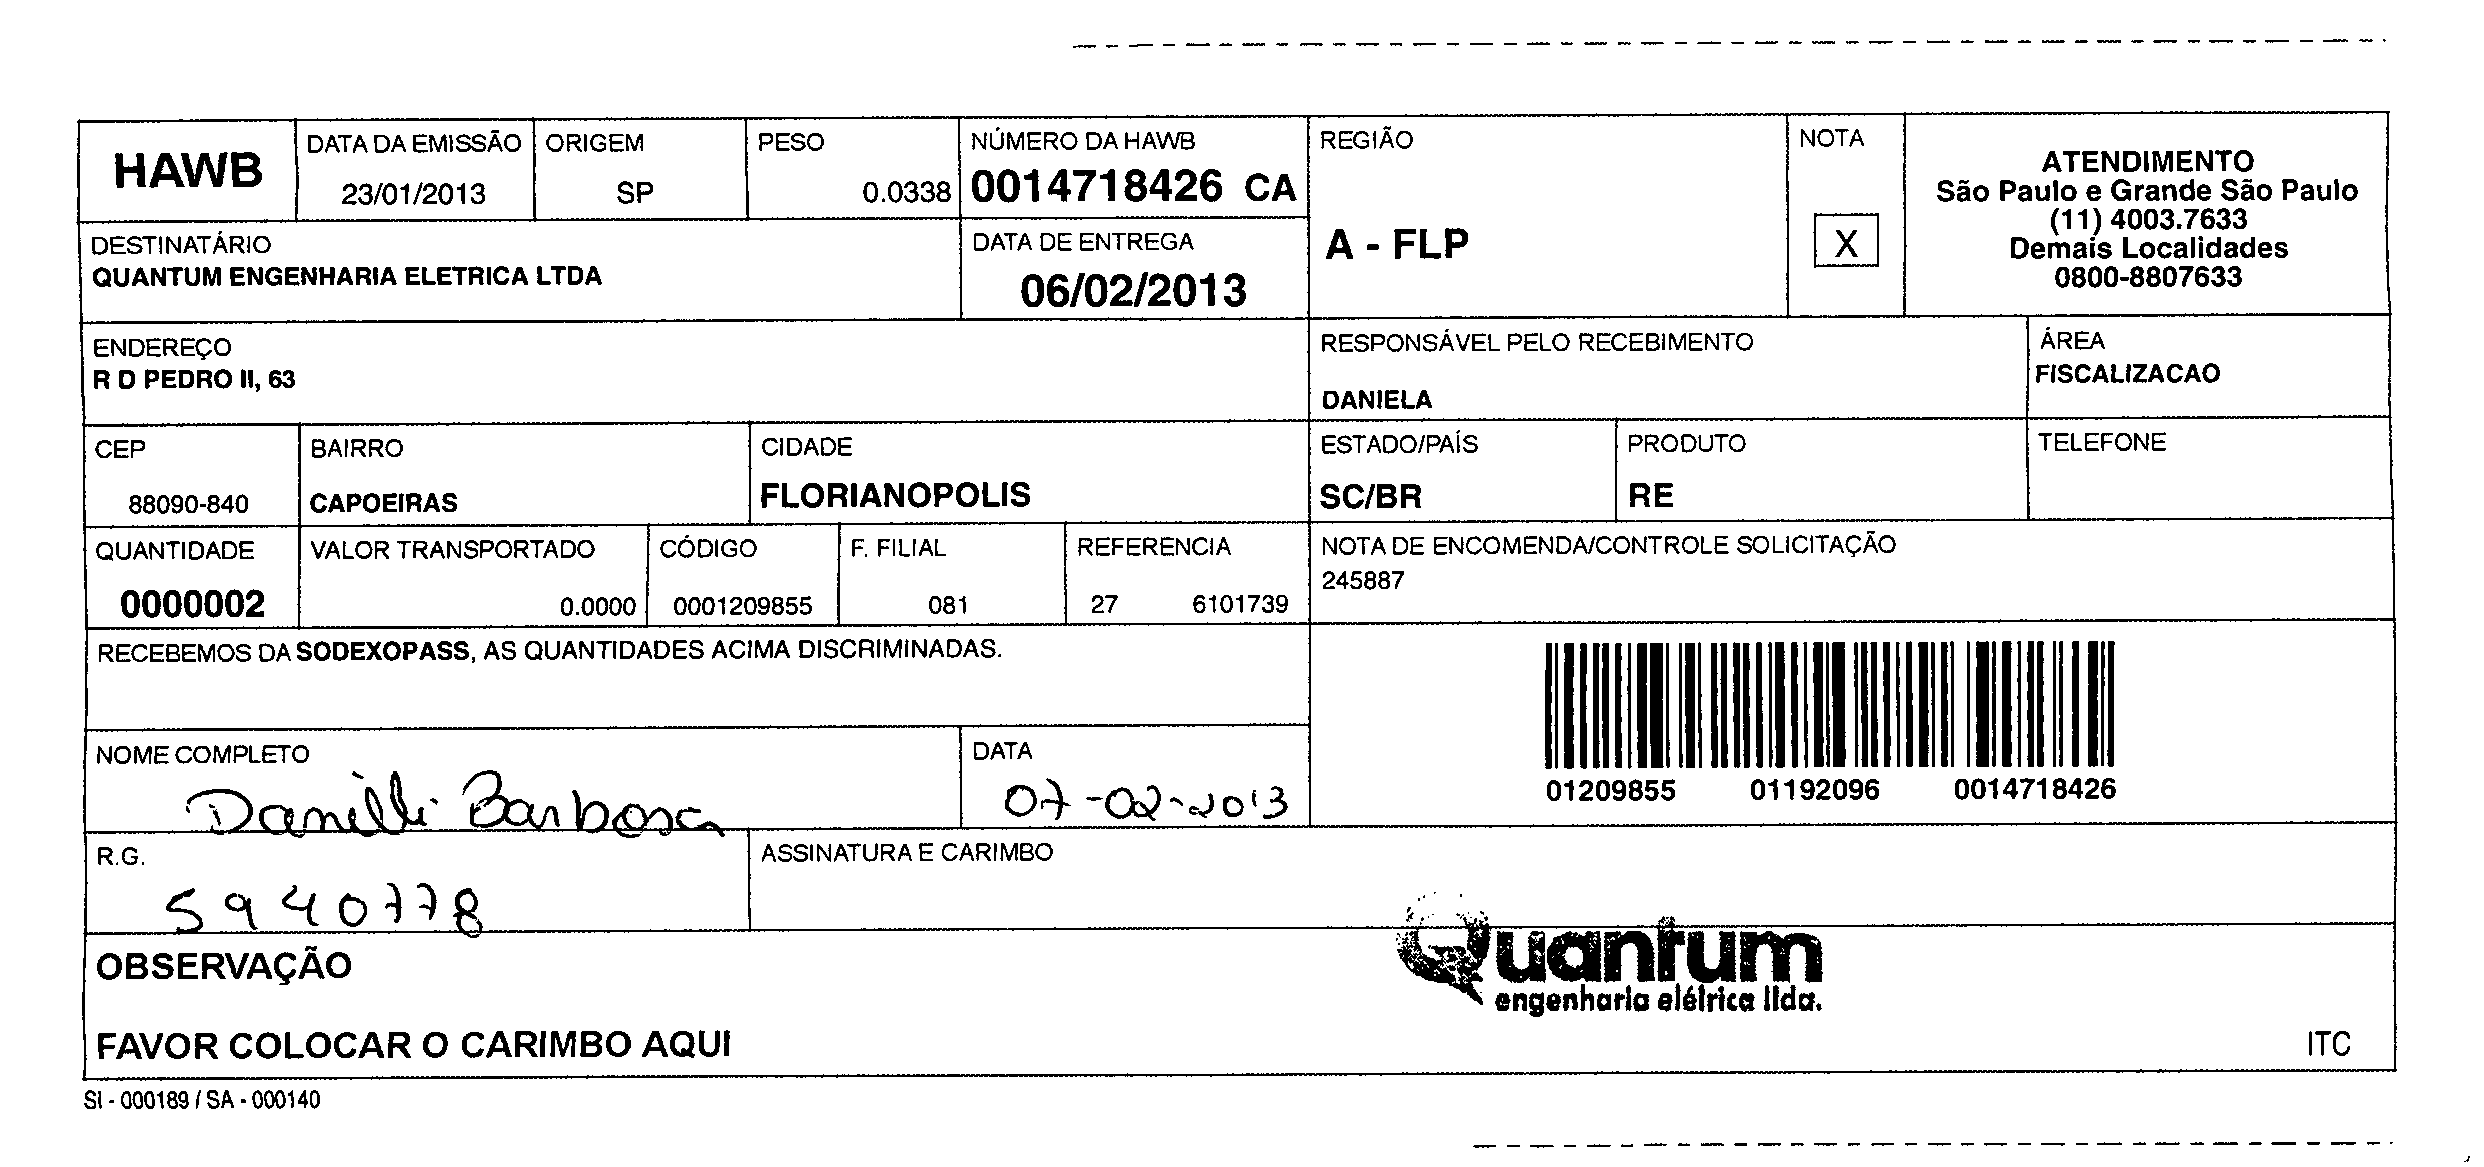 HAWB
DATA DA EMISSÃO
23/01/2013
ORIGEM
SP
PESO
0.0338
NÚMERO DA HAWB
0014718426 CA
REGIÃO
A - FLP
NOTA
X
ATENDIMENTO
São Paulo e Grande São Paulo
(11) 4003.7633
Demais Localidades
0800-8807633
DESTINATÁRIO
QUANTUM ENGENHARIA ELETRICA LTDA
DATA DE ENTREGA
06/02/2013
ENDEREÇO
R D PEDRO II, 63
RESPONSÁVEL PELO RECEBIMENTO
DANIELA
ÁREA
FISCALIZACAO
CEP
88090-840
BAIRRO
CAPOEIRAS
CIDADE
FLORIANOPOLIS
ESTADO/PAÍS
SC/BR
PRODUTO
RE
TELEFONE
QUANTIDADE
0000002
VALOR TRANSPORTADO
0.0000
CÓDIGO
0001209855
F. FILIAL
081
REFERENCIA
27 6101739
NOTA DE ENCOMENDA/CONTROLE SOLICITAÇÃO
245887
RECEBEMOS DA SODEXOPASS, AS QUANTIDADES ACIMA DISCRIMINADAS.
01209855 01192096 0014718426
NOME COMPLETO
Danielli Barbosa
DATA
07-02-2013
R.G.
5940778
ASSINATURA E CARIMBO
Quantum
engenharia elétrica ltda.
OBSERVAÇÃO
FAVOR COLOCAR O CARIMBO AQUI
ITC
SI - 000189 / SA - 000140